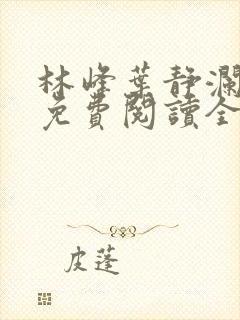 林峰葉静瀾
免費閱讀全
皮蓬